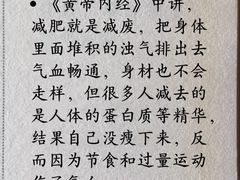 • 《黄帝内经》中讲，
减肥就是减废，把身体
里面堆积的浊气排出去
气血畅通，身材也不会
走样，但很多人减去的
是人体的蛋白质等精华，
结果自己没瘦下来，反
而因为节食和过量运动